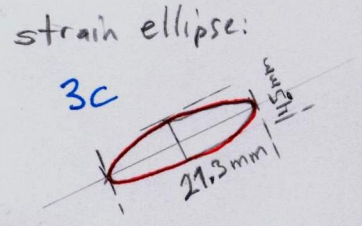 strain ellipse:
3C
21.3mm